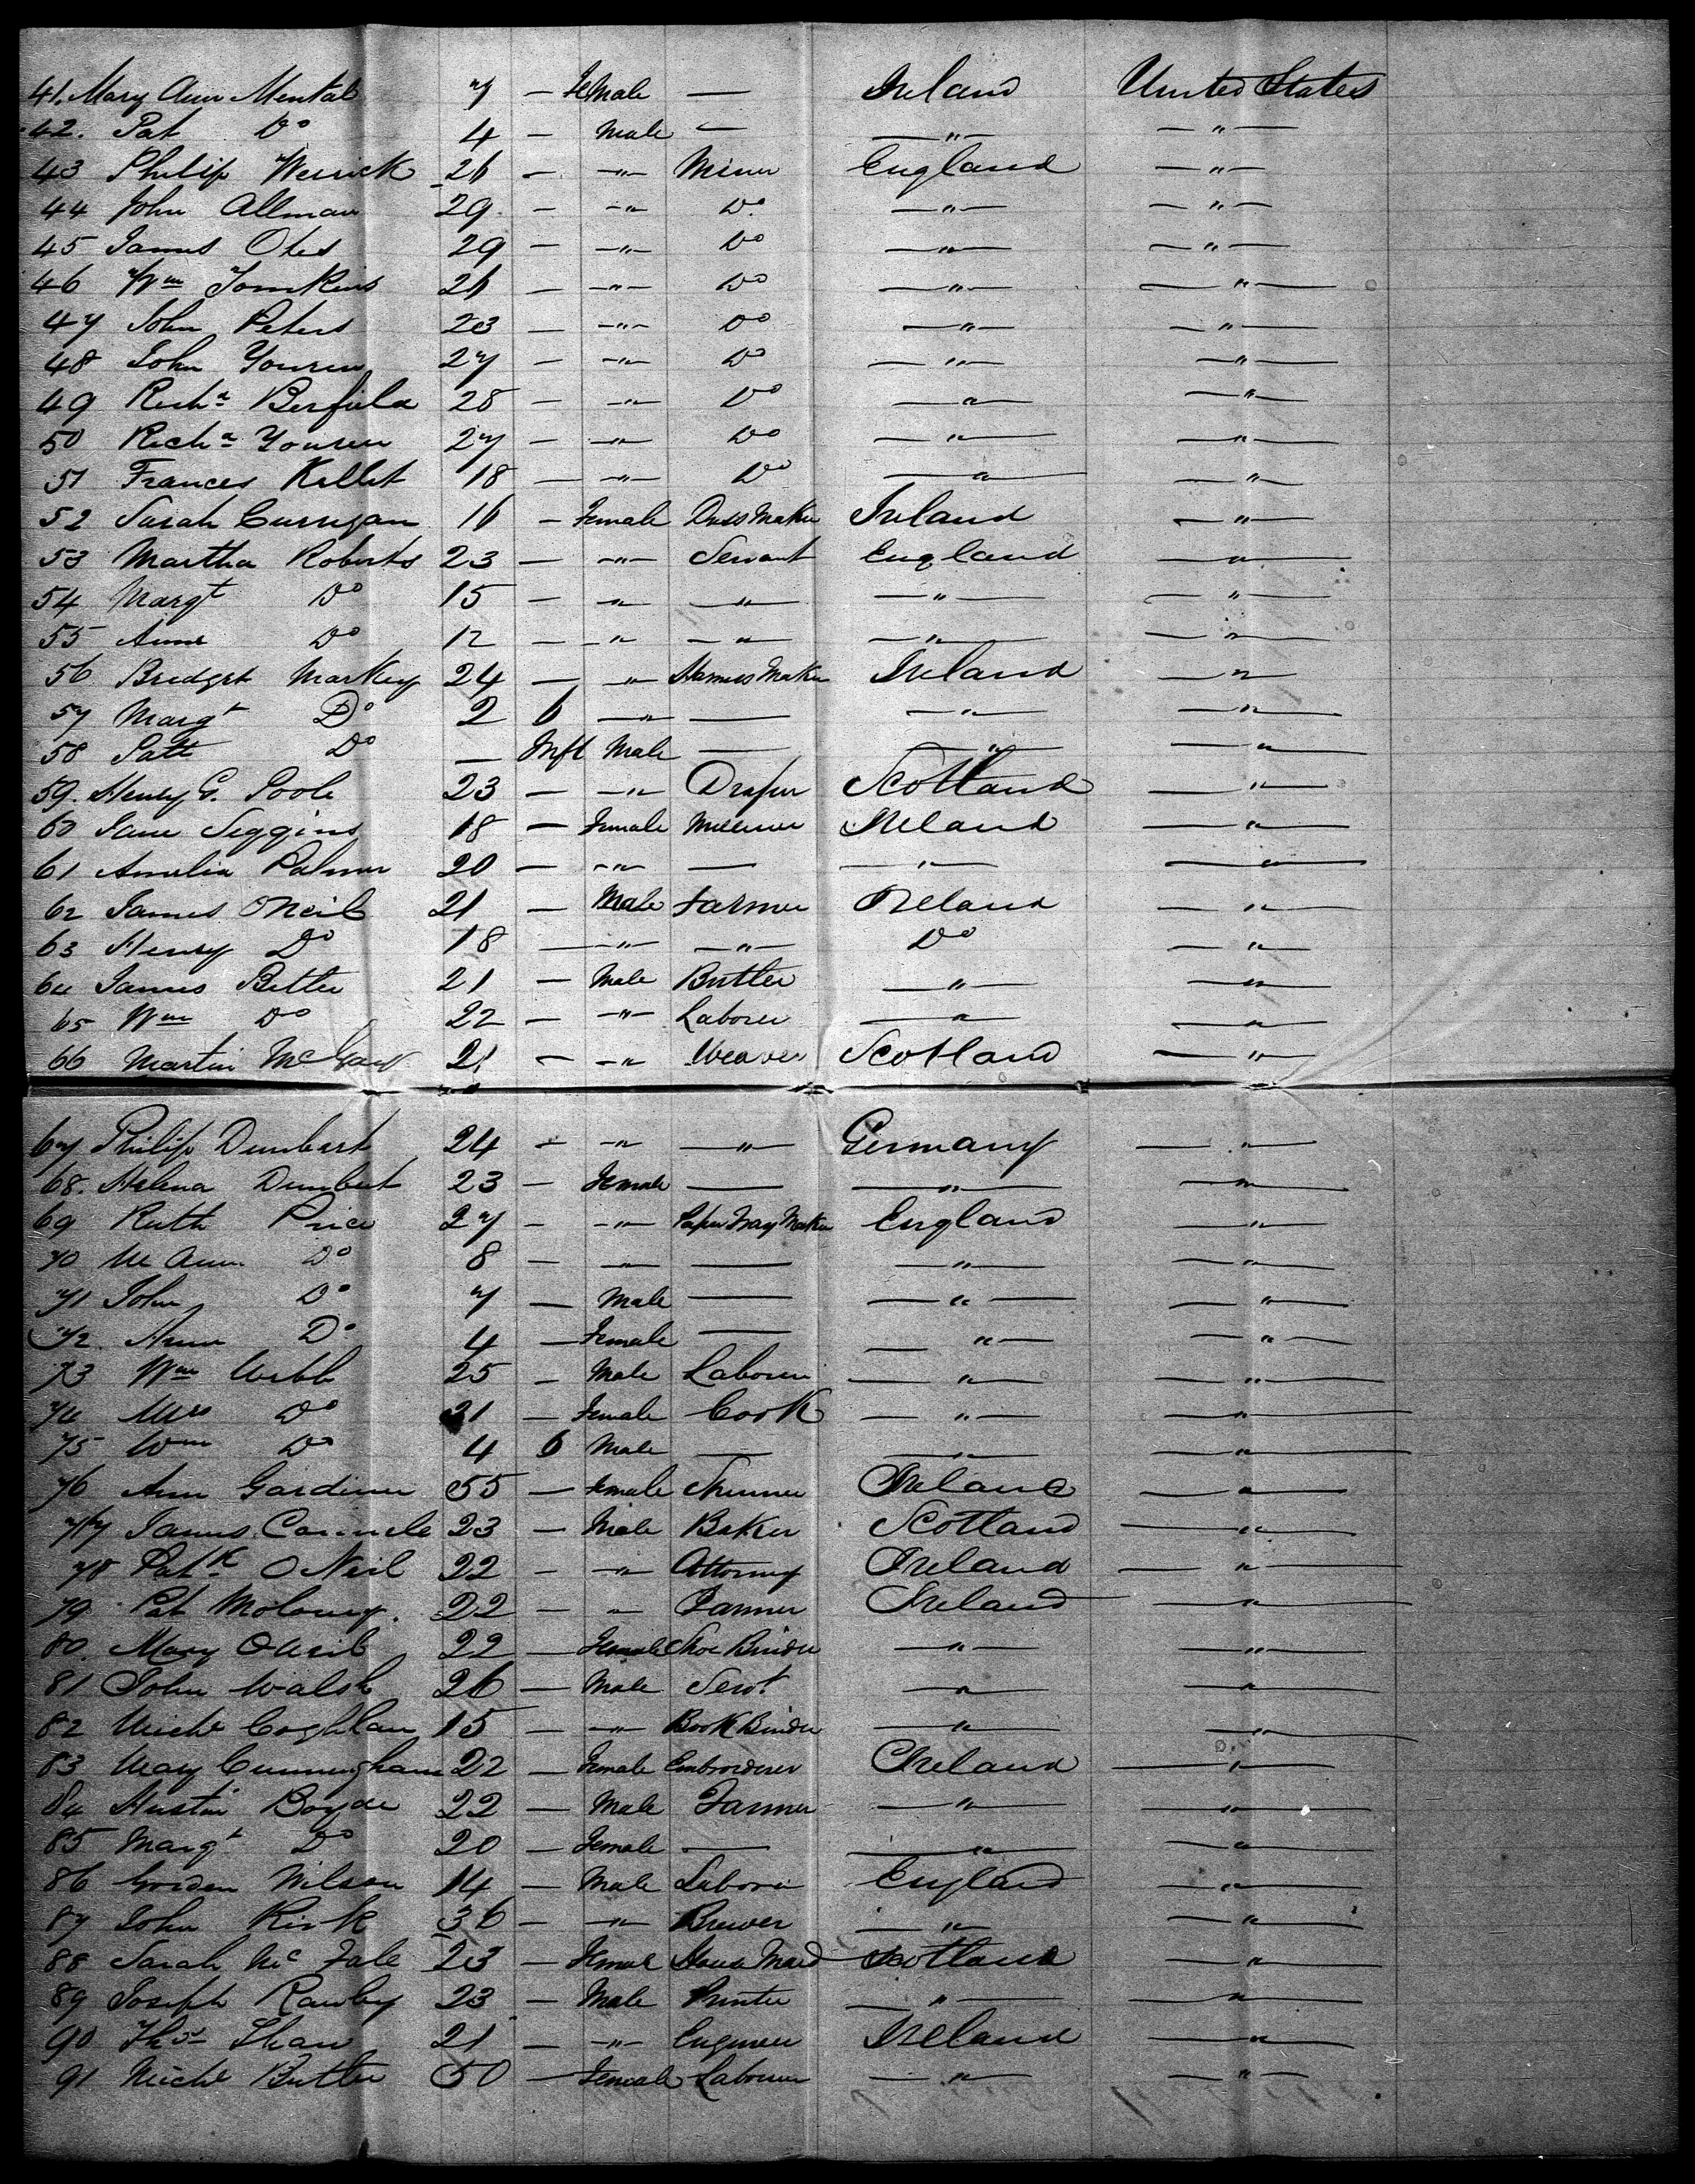 41. Mary Ann Mental 7 — Female — Ireland United States
42. Pat Do 4 — Male — — " — — " —
43 Philip Werrick 26 — — " — Miner England — " —
44 John Allman 29 — — " Do. — " — — " —
45 James Otes 29 — — " — Do — " — — " —
46 Wm Tomkins 26 — — " — Do — " — — " —
47 John Peters 23 — — " — Do — " — — " —
48 John Youren 27 — — " Do — " — — " —
49 Richd Berfield 28 — — " Do — " — — " —
50 Richd Youren 27 — — " — Do — " — — " —
51 Frances Kellet 18 — — " — Do — " — — " —
52 Sarah Currigan 16 — Female Dress Maker Ireland — " —
53 Martha Roberts 23 — — " — Servant England — " —
54 Margt Do 15 — — " — — " — — " — — " —
55 Anne Do 12 — — " — — " — " — — " —
56 Bridget Markey 24 — — " Harness Maker Ireland — " —
57 Margt Do 2 6 — " — — — " — — " —
58 Patt Do — Inft Male — — " — — " —
59. Henry G. Poole 23 — — " Draper Scotland — " —
60 Jane Seggins 18 — Female Milliner Ireland — " —
61 Amelia Palmer 20 — — " — — — " — — " —
62 James ONeil 21 — Male Farmer Ireland — " —
63 Henry Do 18 — — " — — " — Do — " —
64 James Bitter 21 — Male Butler — " — — " —
65 Wm Do 22 — — " — Laborer — " — — " —
66 Martin McGaw 21 — — " Weaver Scotland — " —
67 Philip Dumbert 24 — — " — " — Germany — " —
68. Helena Dumbert 23 — Female — — " — — " —
69 Ruth Price 27 — — " — Paper Bag Maker England — " —
70 M Ann Do 8 — — " — — — " — — " —
71 John Do 7 — Male — — " — — " —
72. Anne Do 4 — Female — — " — — " —
73 Wm Webb 25 — Male Laborer — " — — " —
74 Mrs Do 21 — Female Cook — " — — " —
75 Wm Do 4 6 Male — — " — — " —
76 Ann Gardiner 55 — Female Spinner Ireland — " —
77 James 23 — Male Baker Scotland — " —
78 Patk O Neil 22 — — " Attorney Ireland — " —
79 Pat Moloney. 22 — " Farmer Ireland — " —
80. Mary ONeil 22 — Female Shoe Binder — " — — " —
81 John Walsh 26 — Male Servt — " — — " —
82 Michl Coghlan 15 — — " — Book Binder — " — — " —
83 Mary Cunningham 22 — Female Embroiderer Ireland — " —
84 Austin Boyde 22 — Male Farmer — " — — " —
85 Margt Do 20 — Female — — " — — " —
86 Gordon Wilson 14 — Male Laborer England — " —
87 John Kirk 36 — — " Brewer — " — — " —
88 Sarah Mc Fale 23 — Female House Maid Scotland — " —
89 Joseph Rawley 23 — Male Printer — " — — " —
90 Thos Shaw 21 — — " — Engineer Ireland — " —
91 Michl Butler 50 — Female Laborer — " — — " —